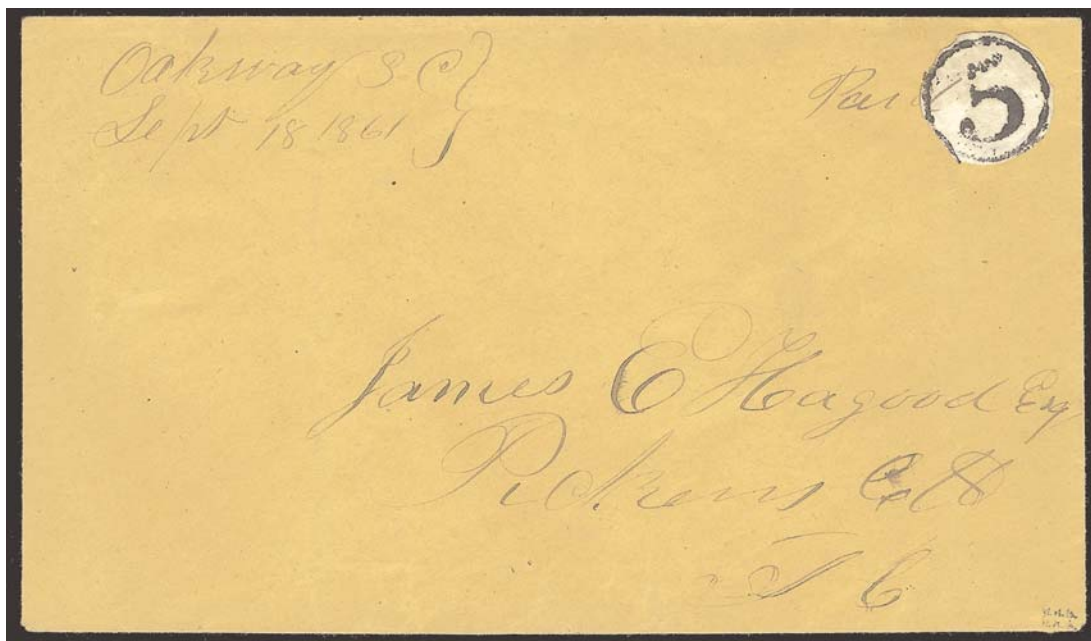 Oakway S C
Sept 18 1861
Pai
5
James E Hagood Esq
Pickens C H
S C